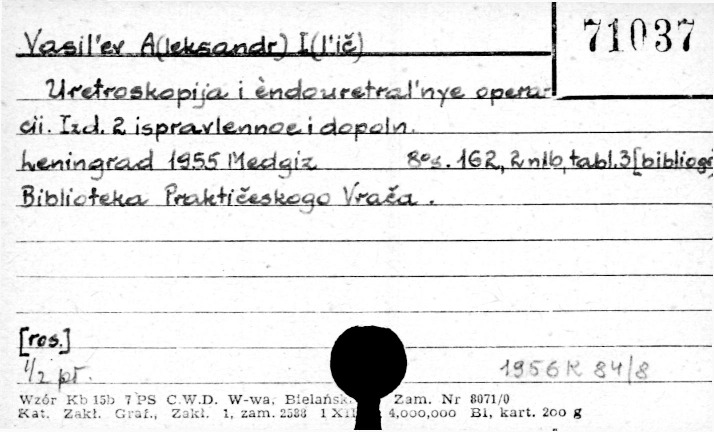 Vasil'ev A(leksandr) I(l'ič)
71037
Uretroskopija i èndouretral'nye opera-
cii. Izd. 2 ispravlennoe i dopoln.
Leningrad 1955 Medgiz 8° s. 162, 2 nlb, tabl. 3 [bibliogr
Biblioteka Praktičeskogo Vrača.
[ros.]
1/2 pł. 1956 K 84/8
Wzór Kb 15b 7 PS C.W.D. W-wa, Bielańsk Zam. Nr 8071/0
Kat. Zakł. Graf., Zakł. 1, zam. 2588 1 XII 4,000,000 Bl, kart. 200 g